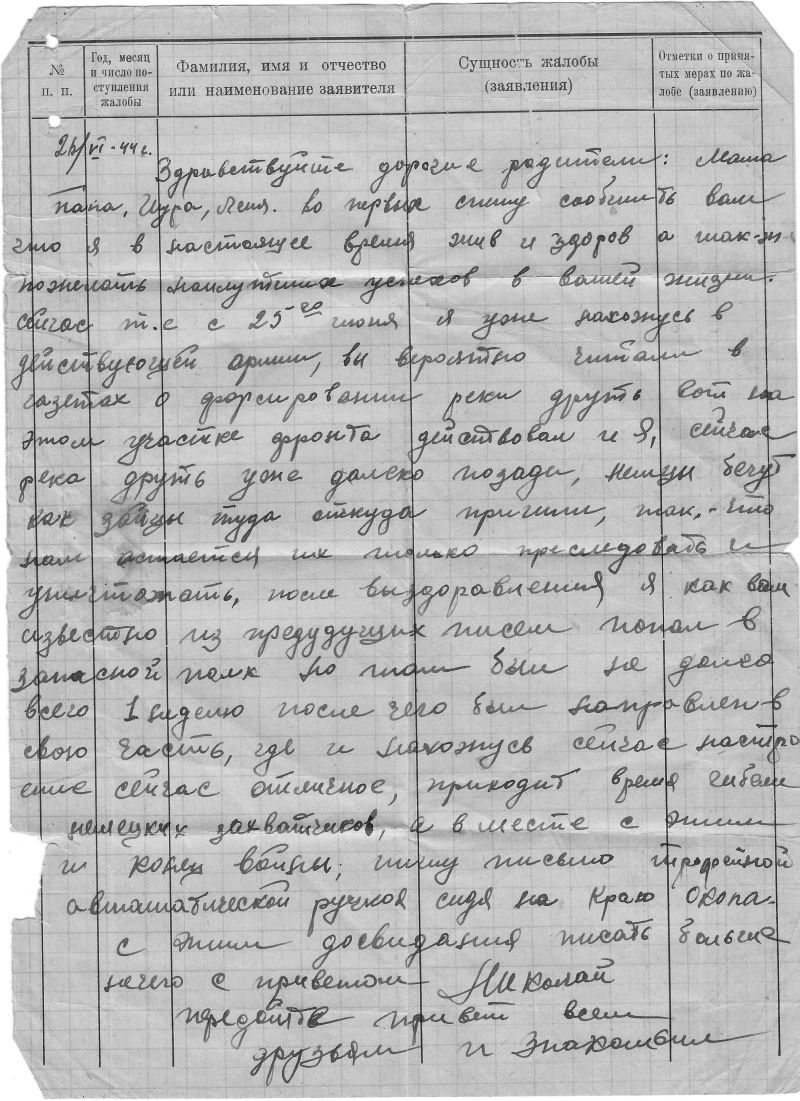 № п. п.
Год, месяц и число поступления жалобы
Фамилия, имя и отчество или наименование заявителя
Сущность жалобы (заявления)
Отметки о принятых мерах по жалобе (заявлению)
26/VI-44 г.
Здравствуйте дорогие родители: Мама
папа, Шура, Леня. во первых спешу сообщить вам
что я в настоящее время жив и здоров а так-же
пожелать наилутших успехов в вашей жизни.
Сейчас т.е с 25-го июня я уже нахожусь в
действующей армии, вы вероятно читали в
газетах о форсировании реки друть вот на
этом участке фронта действовал и я, сейчас
река друть уже далеко позади, немцы бегут
как зайцы туда откуда пришли, так,-что
нам остается их только преследовать и
уничтожать, после выздоравления я как вам
известно из предудущих писем попал в
запасной полк но там был не долго
всего 1 неделю после чего был направлен в
свою часть, где и нахожусь сейчас настро
ение сейчас отличное, приходит время гибели
немецких захватчиков, а в месте с этим
и конец войны, пишу письмо трофейной
автоматической ручкой сидя на краю окопа.
с этим досвидания писать больше
нечего с приветом Николай
передайте привет всем
друзьям и знакомым